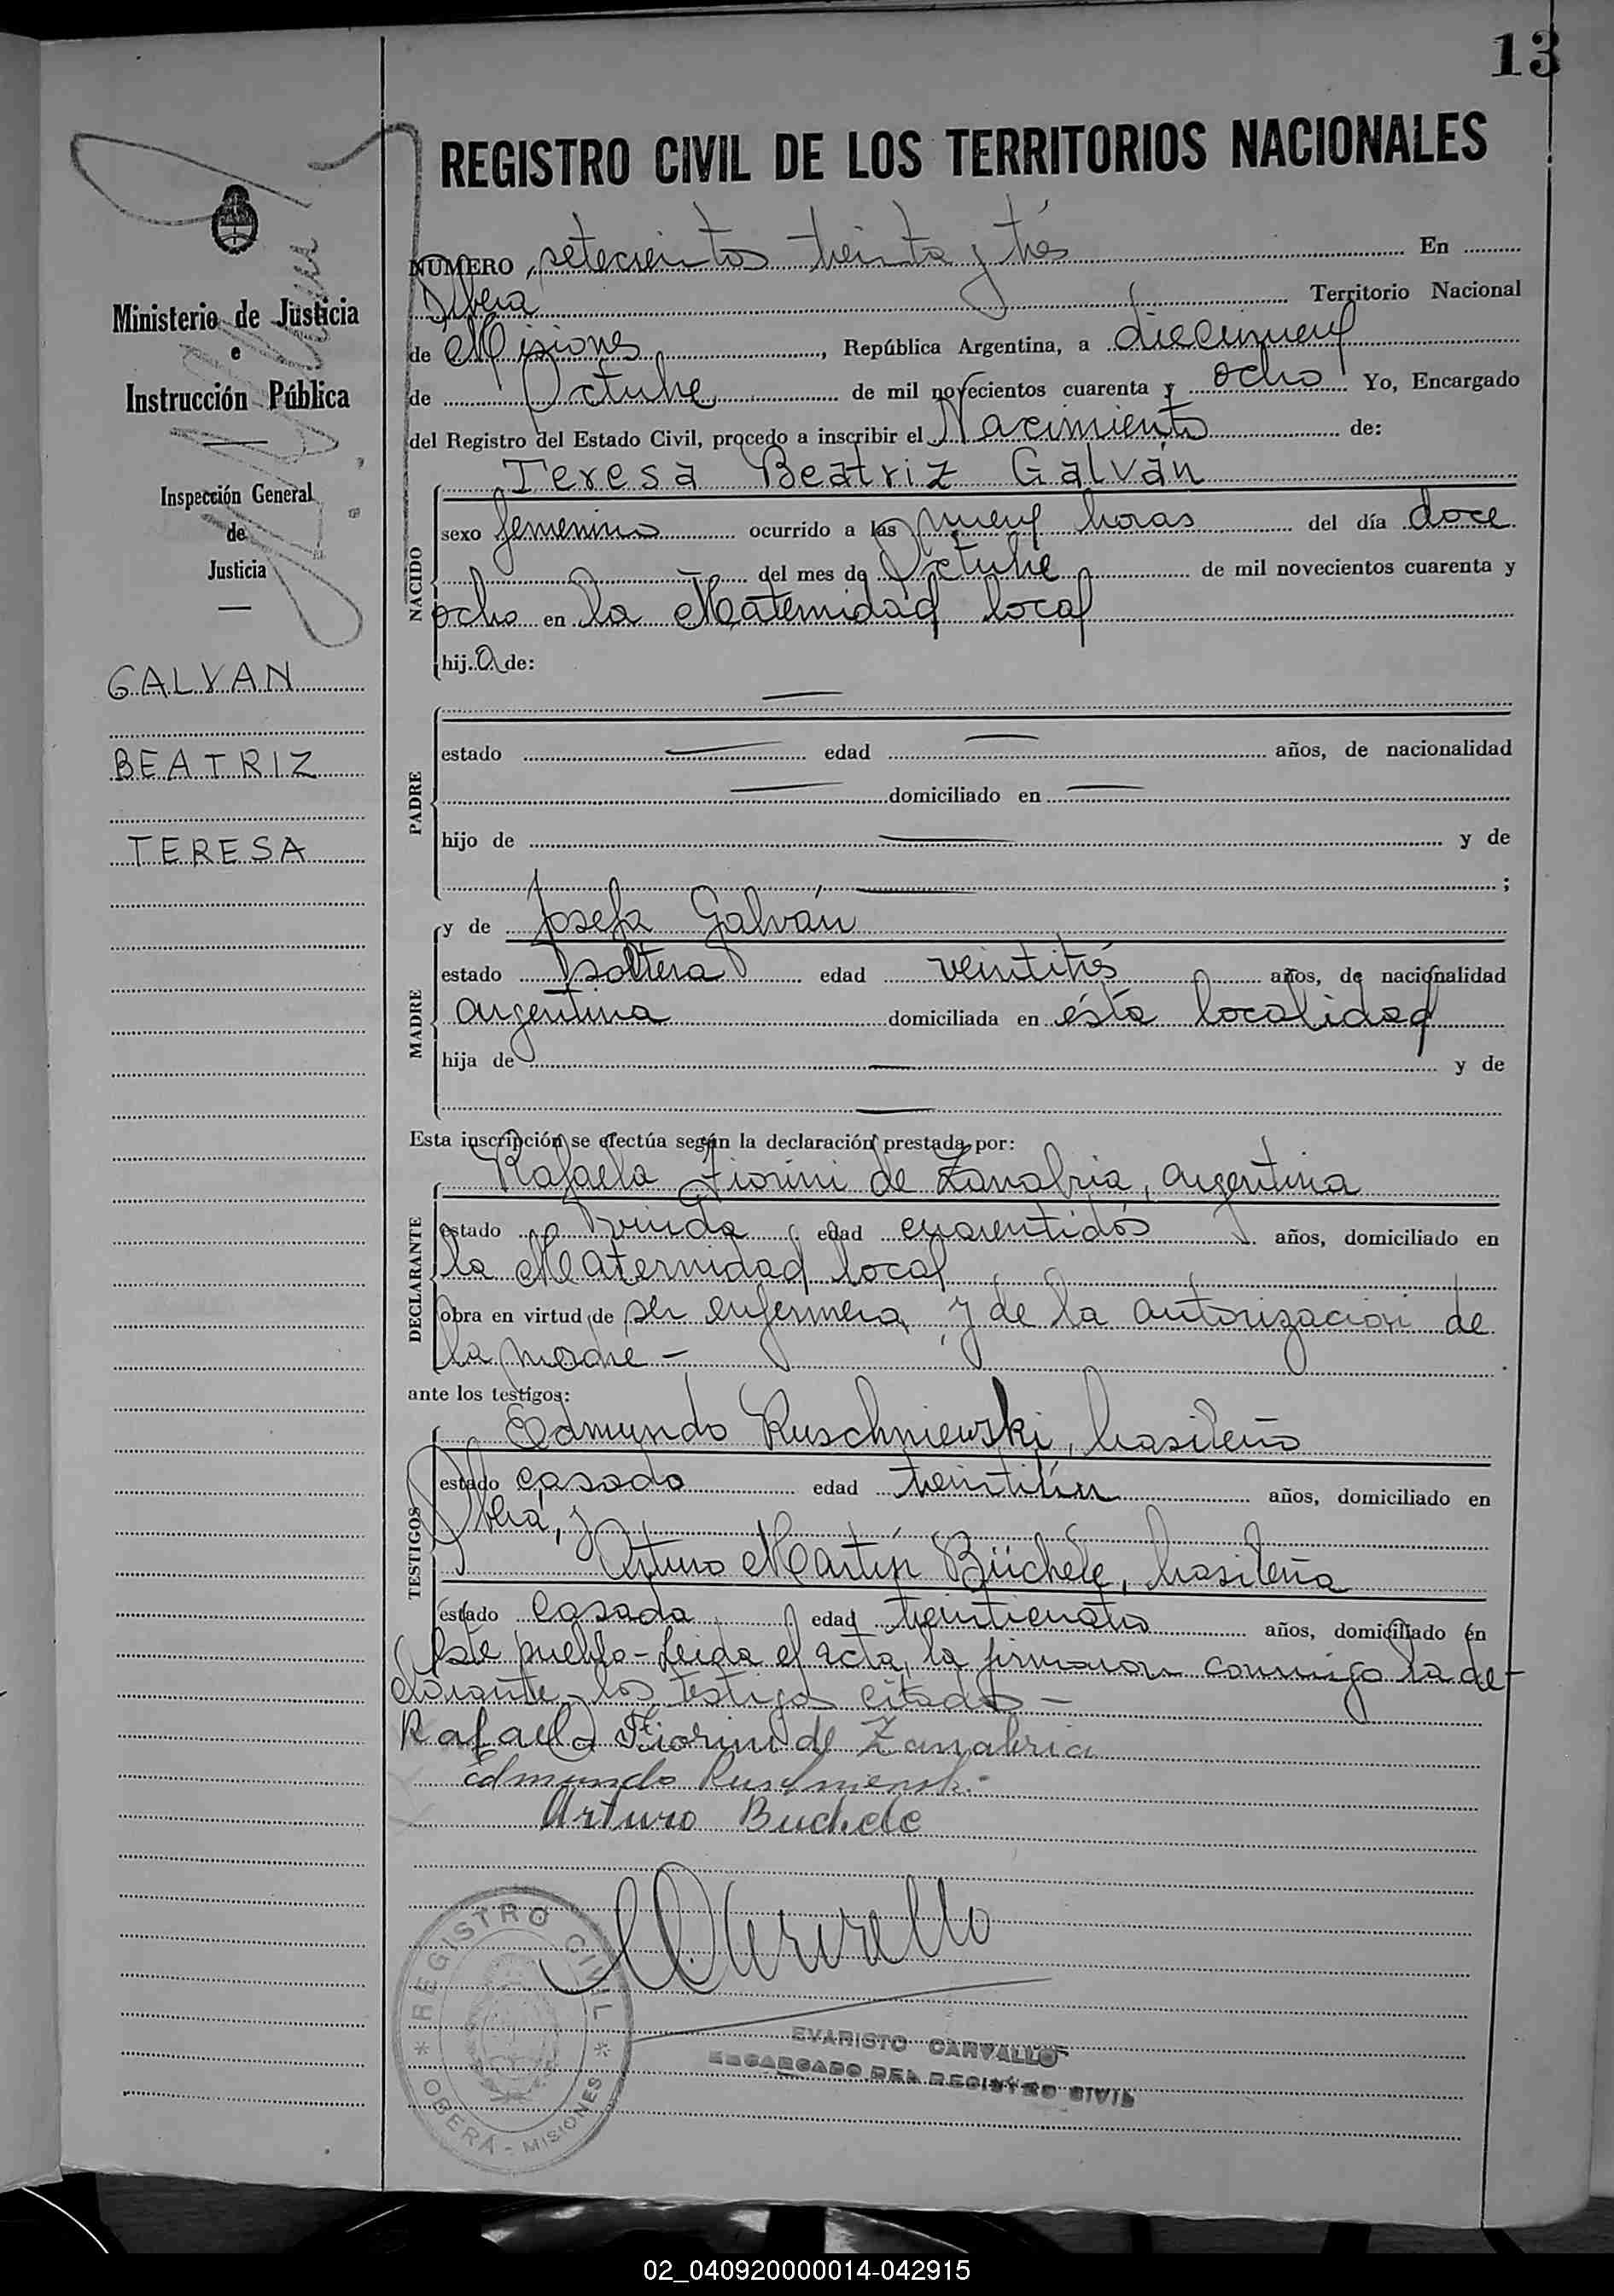 13
REGISTRO CIVIL DE LOS TERRITORIOS NACIONALES
Ministerio de Justicia
e
Instrucción Pública
Inspección General
de
Justicia
GALVAN
BEATRIZ
TERESA
NUMERO setecientos treinta y trés En
Oberá Territorio Nacional
de Misiones, República Argentina, a diecinueve
de Octubre de mil novecientos cuarenta y ocho Yo, Encargado
del Registro del Estado Civil, procedo a inscribir el Nacimiento de:
Teresa Beatriz Galván
NACIDO
sexo femenino ocurrido a las nueve horas del día doce
del mes de Octubre de mil novecientos cuarenta y
ocho en la Maternidad local
hija de:
PADRE
estado — edad — años, de nacionalidad
— domiciliado en —
hijo de — y de
— ;
MADRE
y de Josefa Galván
estado soltera edad veintitrés años, de nacionalidad
argentina domiciliada en ésta localidad
hija de — y de
—
Esta inscripción se efectúa según la declaración prestada por:
Rafaela Fiorini de Zanabria, argentina
DECLARANTE
estado viuda edad cuarentidós años, domiciliado en
la Maternidad local
obra en virtud de ser enfermera y de la autorización de
la madre -
ante los testigos:
Edmundo Ruschniewski, brasileño
TESTIGOS
estado casado edad treintiún años, domiciliado en
Oberá, y
Arturo Martín Büchele, brasileño
estado casado edad treinticuatro años, domiciliado en
este pueblo - Leida el acta, la firmaron conmigo la de-
clarante y los testigos citados -
Rafaela Fiorini de Zanabria
Edmundo Ruschniewski
Arturo Buchele
REGISTRO CIVIL
* OBERÁ - MISIONES *
EVARISTO CARVALLO
ENCARGADO DEL REGISTRO CIVIL
02_040920000014-042915